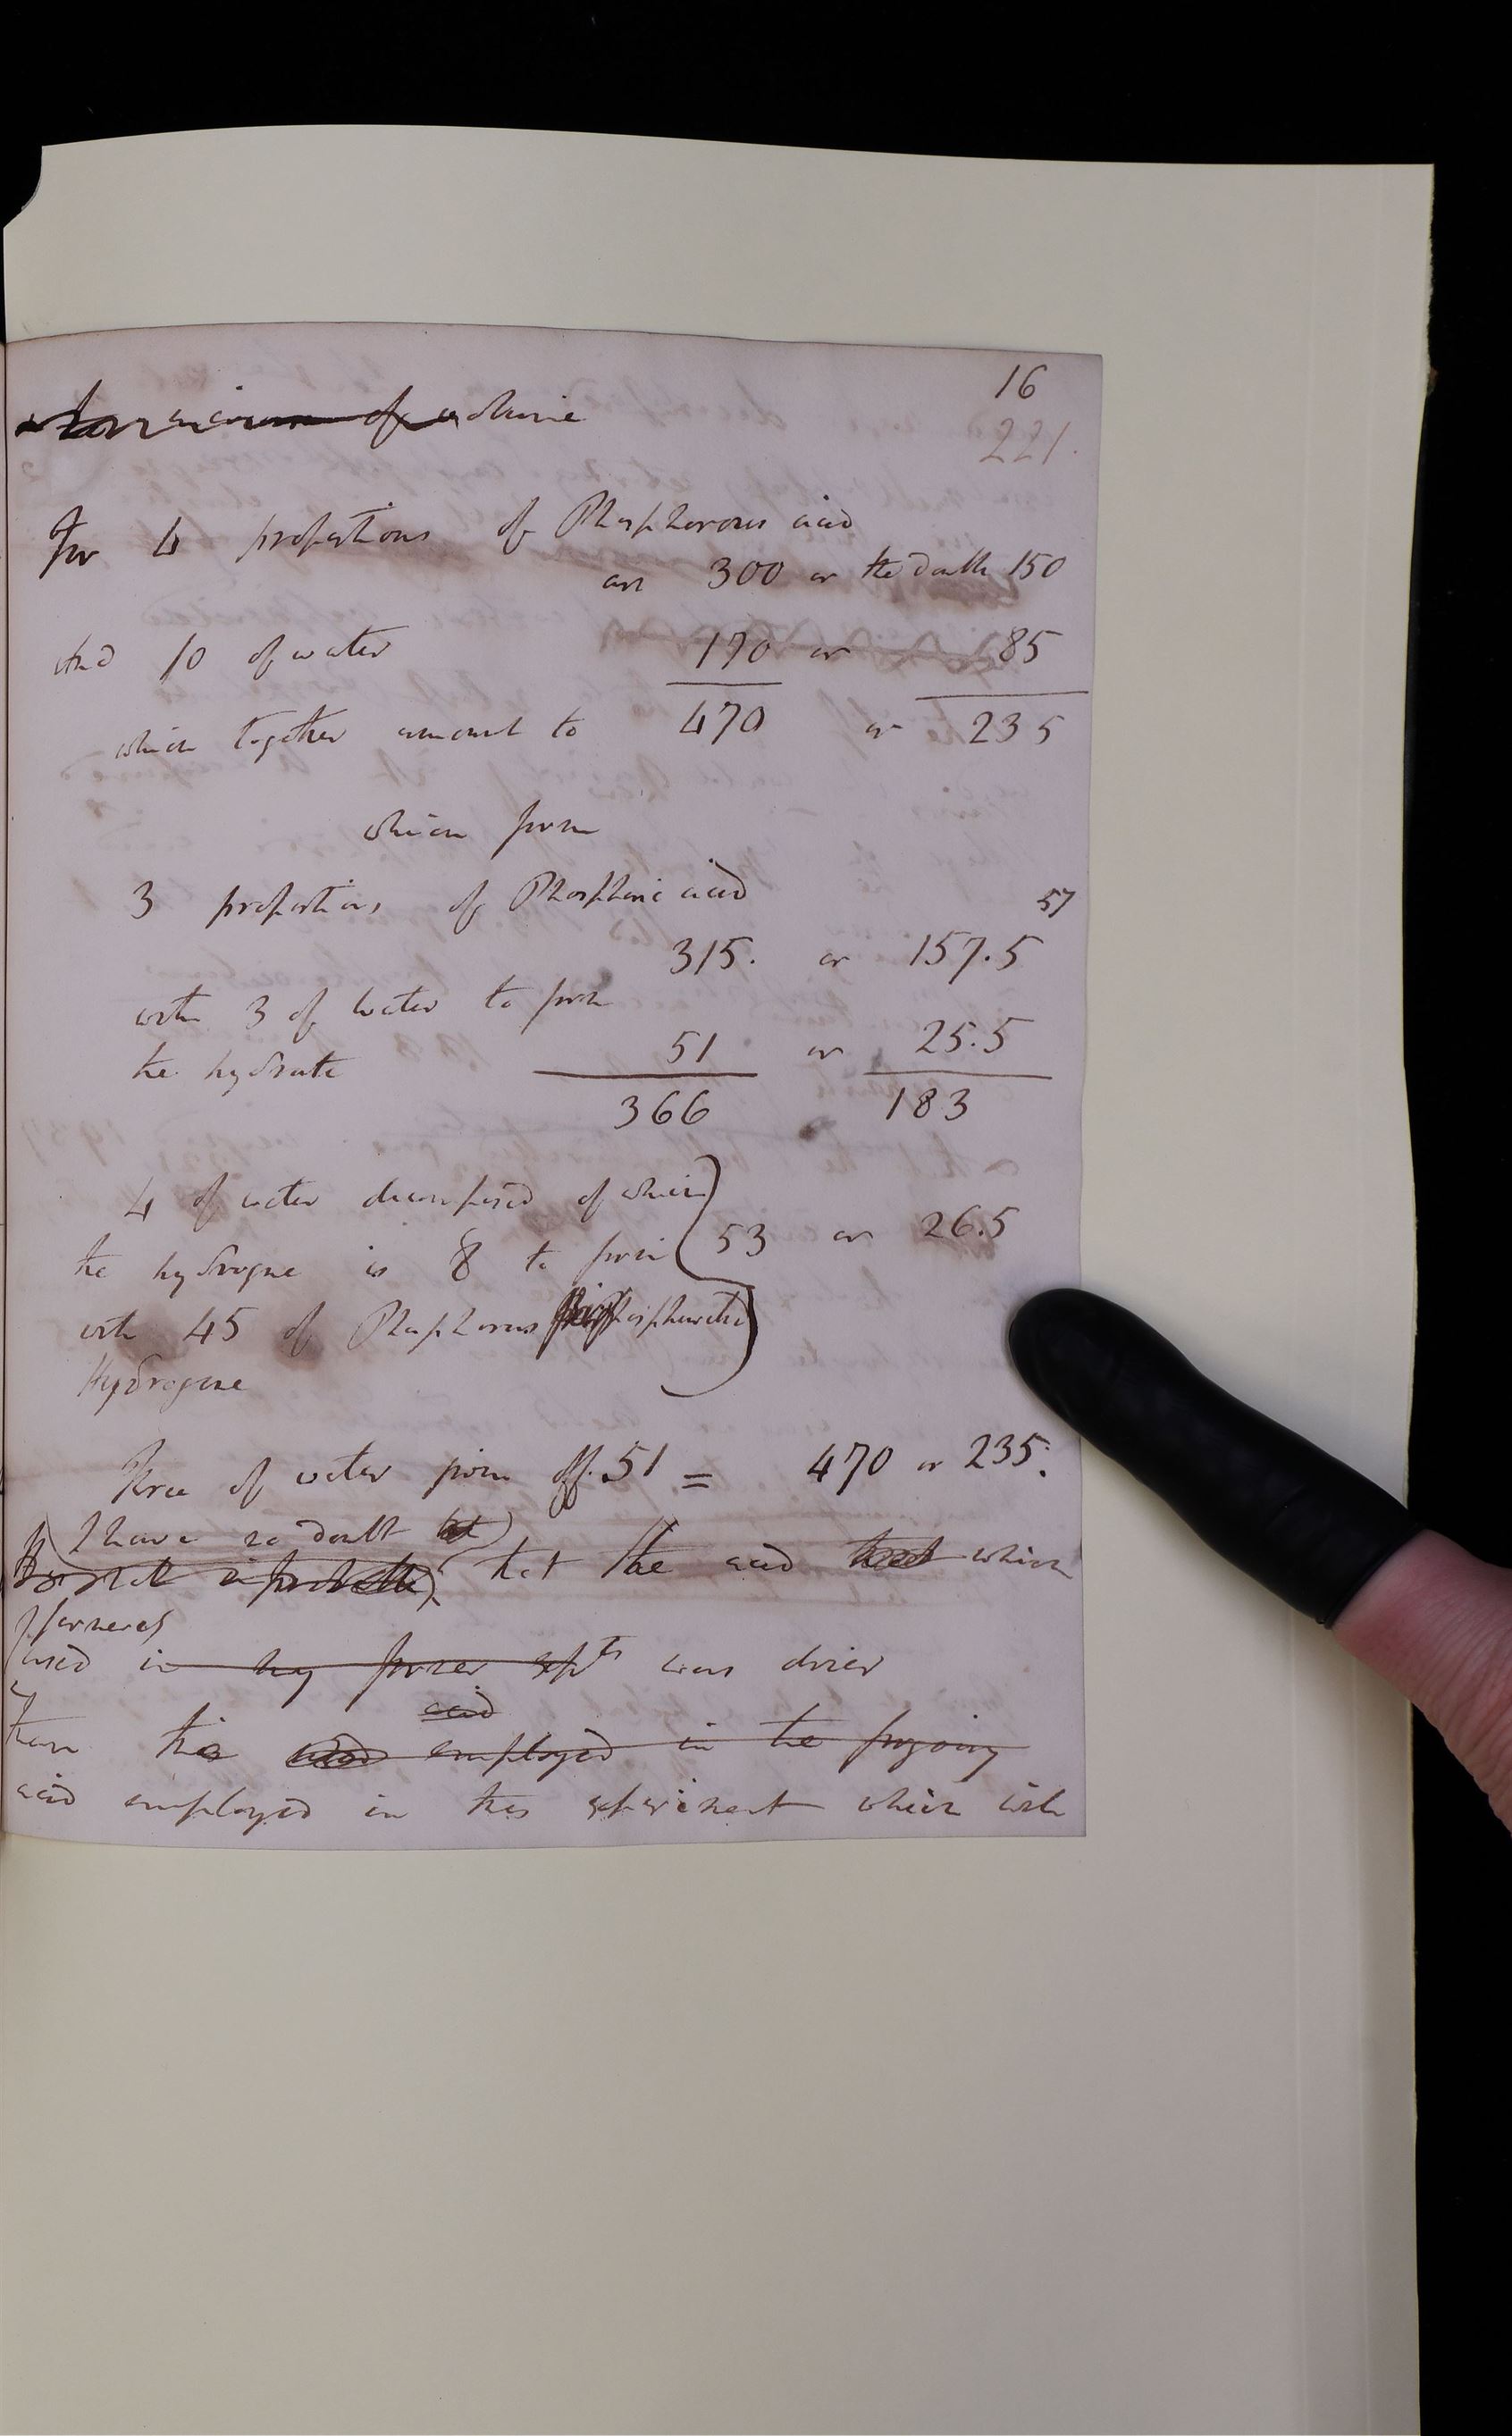 16
221.
of volume
For 4 proportions of Phosphorous acid
are 300 or the double 150
And 10 of water 170 or 85
which together amount to 470 or 235
which form
3 proportions of Phosphoric acid
57
315. or 157.5
with 3 of water to form
the hydrate 51 or 25.5
366 183
4 of water decomposed of which
the hydrogene is 8 to form 53 or 26.5
with 45 of Phosphorus
Hydrogene
Three of water given off. 51 = 470 or 235.
I have no doubt
that the acid that which
used in my former expts was drier
acid
than the employed in the foregoing
acid employed in this experiment which with